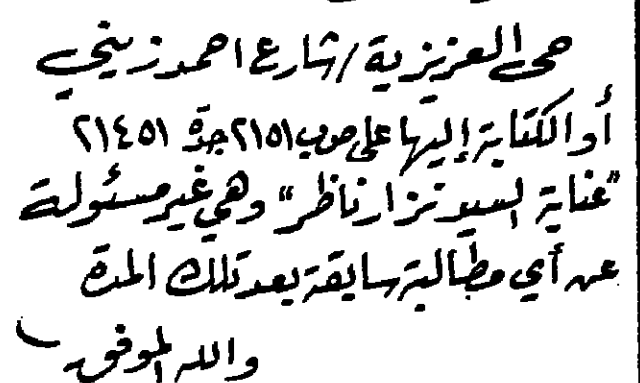 حى العزيزية / شارع احمد زيني
أو الكتابة إليها على ص ب ٢١٥١ جدة ٢١٤٥١
"عناية السيد نزار ناظر" وهي غير مسئولة
عن أي مطالبة سابقة بعد تلك المدة
والله الموفق